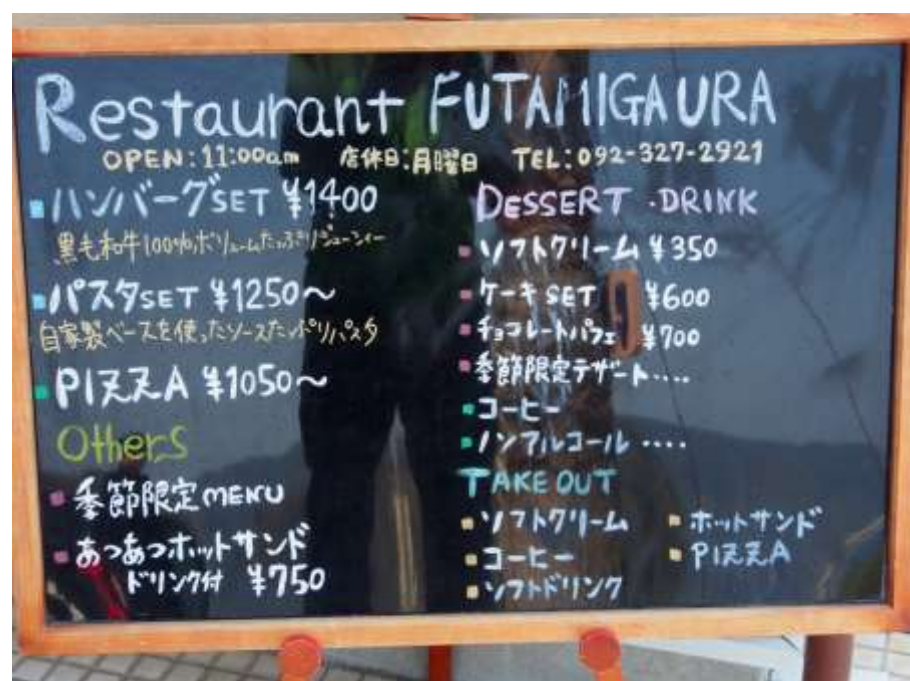 Restaurant FUTAMIGAURA
OPEN:11:00am 店休日:月曜日 TEL:092-327-2921
ハンバーグSET ¥1400
黒毛和牛100%ボリュームたっぷりジューシィー
パスタSET ¥1250〜
自家製ベースを使ったソースたっぷりパスタ
PIZZA ¥1050〜
Others
季節限定MENU
あつあつホットサンド
ドリンク付 ¥750
DESSERT・DRINK
ソフトクリーム ¥350
ケーキSET ¥600
チョコレートパフェ ¥700
季節限定デザート....
コーヒー
ノンアルコール ....
TAKE OUT
ソフトクリーム
コーヒー
ソフトドリンク
ホットサンド
PIZZA